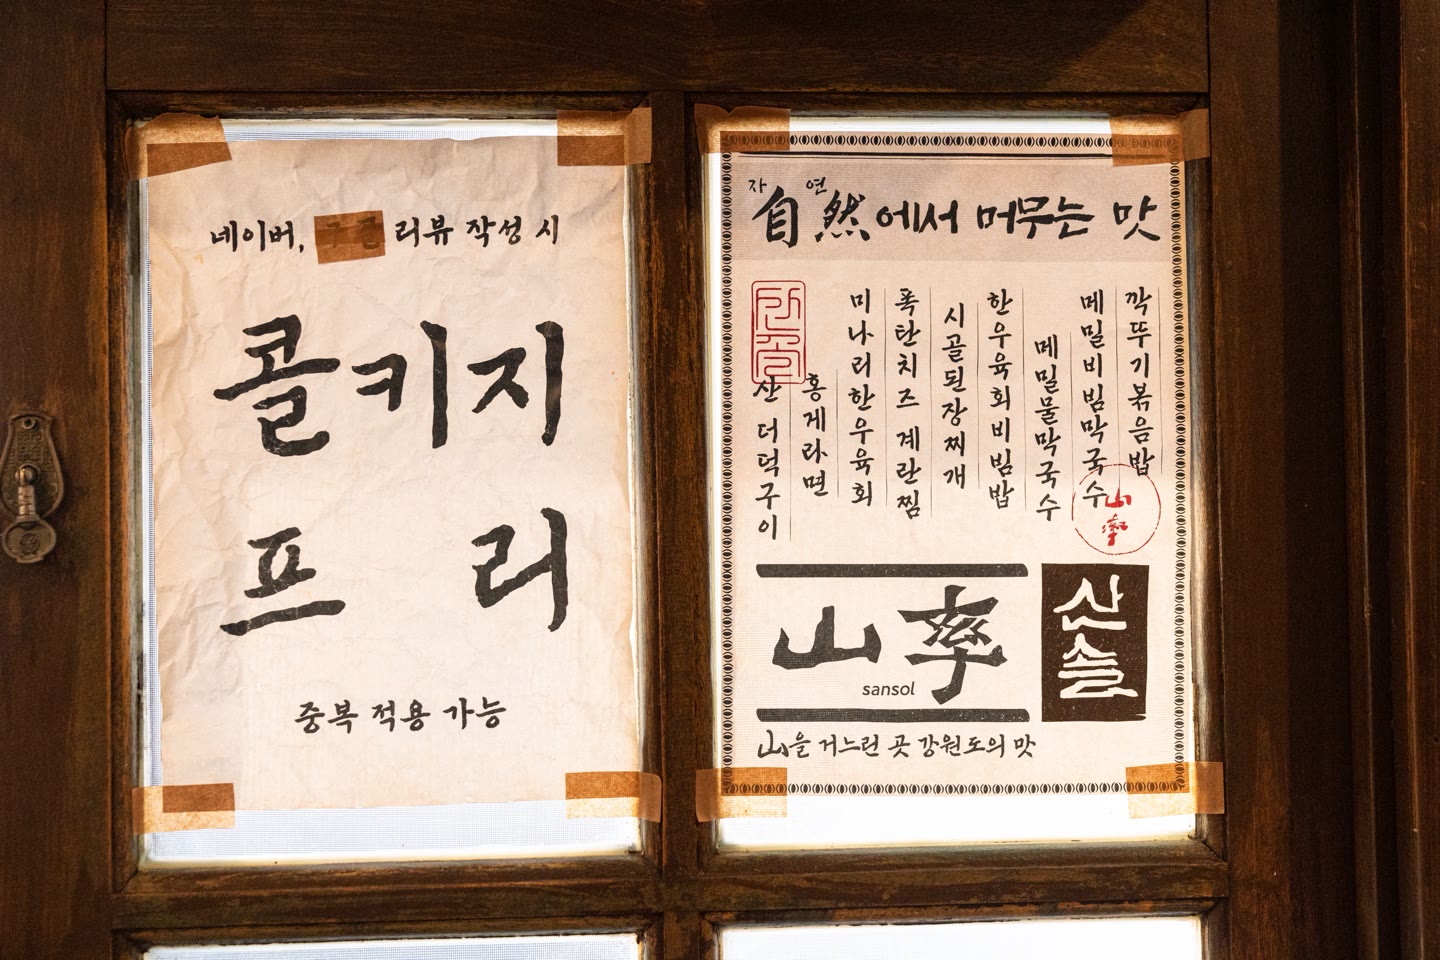 네이버, 리뷰 작성 시
콜키지
프리
중복 적용 가능
자 연
自然에서 머무는 맛
깍뚜기볶음밥
메밀비빔막국수
메밀물막국수
한우육회비빔밥
시골된장찌개
폭탄치즈계란찜
미나리한우육회
홍게라면
산더덕구이
山率
山率
sansol
산솔
山을 거느린 곳 강원도의 맛